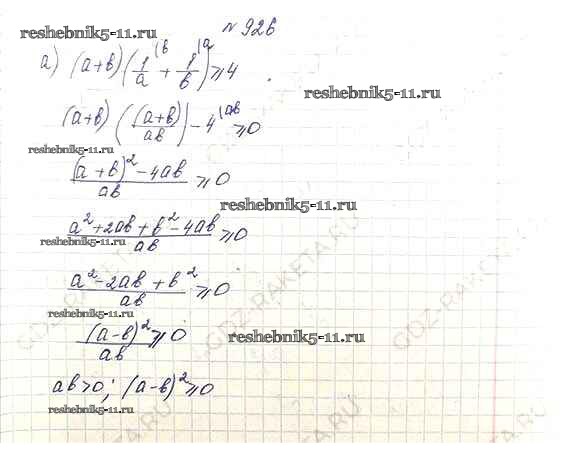 № 926
reshebnik5-11.ru
а) (a+b)(1/a |b + 1/b |a) ≥ 4
reshebnik5-11.ru
(a+b)((a+b)/ab) - 4 |ab ≥ 0
reshebnik5-11.ru
((a+b)² - 4ab)/ab ≥ 0
reshebnik5-11.ru
(a² + 2ab + b² - 4ab)/ab ≥ 0
reshebnik5-11.ru
(a² - 2ab + b²)/ab ≥ 0
reshebnik5-11.ru
(a-b)²/ab ≥ 0
reshebnik5-11.ru
ab > 0; (a-b)² ≥ 0
reshebnik5-11.ru
GDZ-RAKETA.RU
GDZ-RAKETA.RU
GDZ-RAKETA.RU